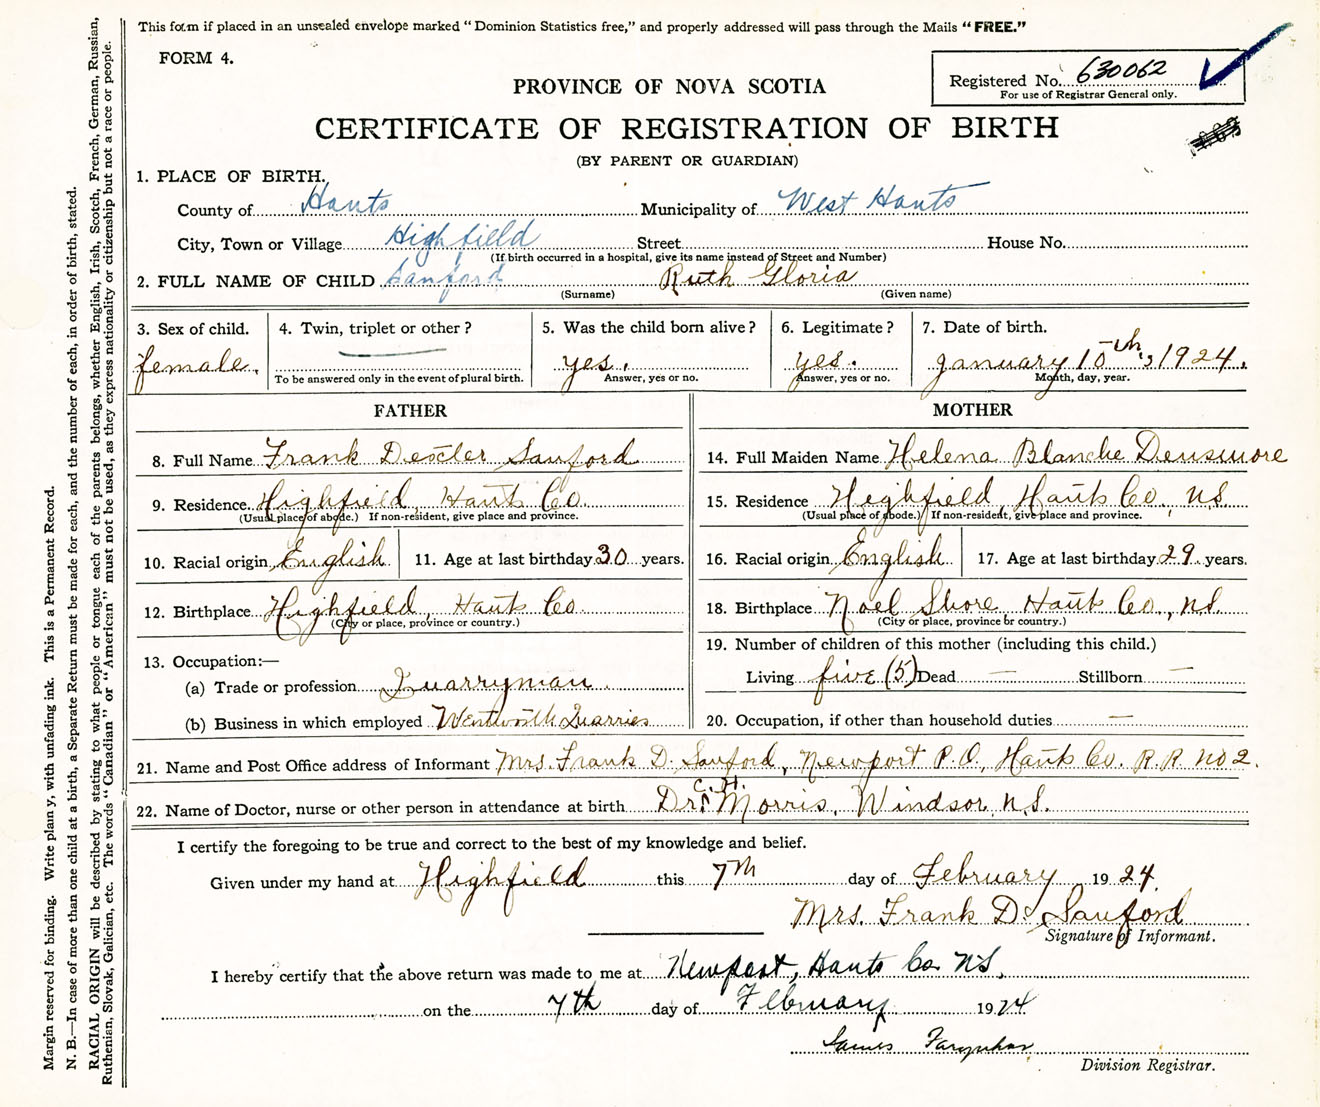 This form if placed in an unsealed envelope marked "Dominion Statistics free," and properly addressed will pass through the Mails "FREE."
FORM 4.
Registered No. 630062
For use of Registrar General only.
PROVINCE OF NOVA SCOTIA
CERTIFICATE OF REGISTRATION OF BIRTH
(BY PARENT OR GUARDIAN)
1. PLACE OF BIRTH.
County of Hants Municipality of West Hants
City, Town or Village Highfield Street House No.
(If birth occurred in a hospital, give its name instead of Street and Number)
2. FULL NAME OF CHILD Sanford Ruth Gloria
(Surname) (Given name)
3. Sex of child. 4. Twin, triplet or other? 5. Was the child born alive? 6. Legitimate? 7. Date of birth.
female. yes. yes. January 10th, 1924.
To be answered only in the event of plural birth. Answer, yes or no. Answer, yes or no. Month, day, year.
FATHER MOTHER
8. Full Name Frank Dexter Sanford 14. Full Maiden Name Helena Blanche Densmore
9. Residence Highfield, Hants Co. 15. Residence Highfield, Hants Co., N.S.
(Usual place of abode.) If non-resident, give place and province. (Usual place of abode.) If non-resident, give place and province.
10. Racial origin English 11. Age at last birthday 30 years. 16. Racial origin English 17. Age at last birthday 29 years.
12. Birthplace Highfield, Hants Co. 18. Birthplace Noel Shore Hants Co., N.S.
(City or place, province or country.) (City or place, province or country.)
13. Occupation:— 19. Number of children of this mother (including this child.)
(a) Trade or profession Quarryman Living five (5) Dead — Stillborn —
(b) Business in which employed Wentworth Quarries 20. Occupation, if other than household duties —
21. Name and Post Office address of Informant Mrs. Frank D. Sanford, Newport P.O., Hants Co. R.R. No 2.
22. Name of Doctor, nurse or other person in attendance at birth Dr. C.H. Morris, Windsor, N.S.
I certify the foregoing to be true and correct to the best of my knowledge and belief.
Given under my hand at Highfield this 7th day of February 1924.
Mrs. Frank D. Sanford
Signature of Informant.
I hereby certify that the above return was made to me at Newport, Hants Co. N.S.
on the 7th day of February 1924
James Farquhar
Division Registrar.
Margin reserved for binding. Write plainy, with unfading ink. This is a Permanent Record.
N. B.—In case of more than one child at a birth, a Separate Return must be made for each, and the number of each, in order of birth, stated.
RACIAL ORIGIN will be described by stating to what people or tongue each of the parents belongs, whether English, Irish, Scotch, French, German, Russian,
Ruthenian, Slovak, Galician, etc. The words "Canadian" or "American" must not be used, as they express nationality or citizenship but not a race or people.